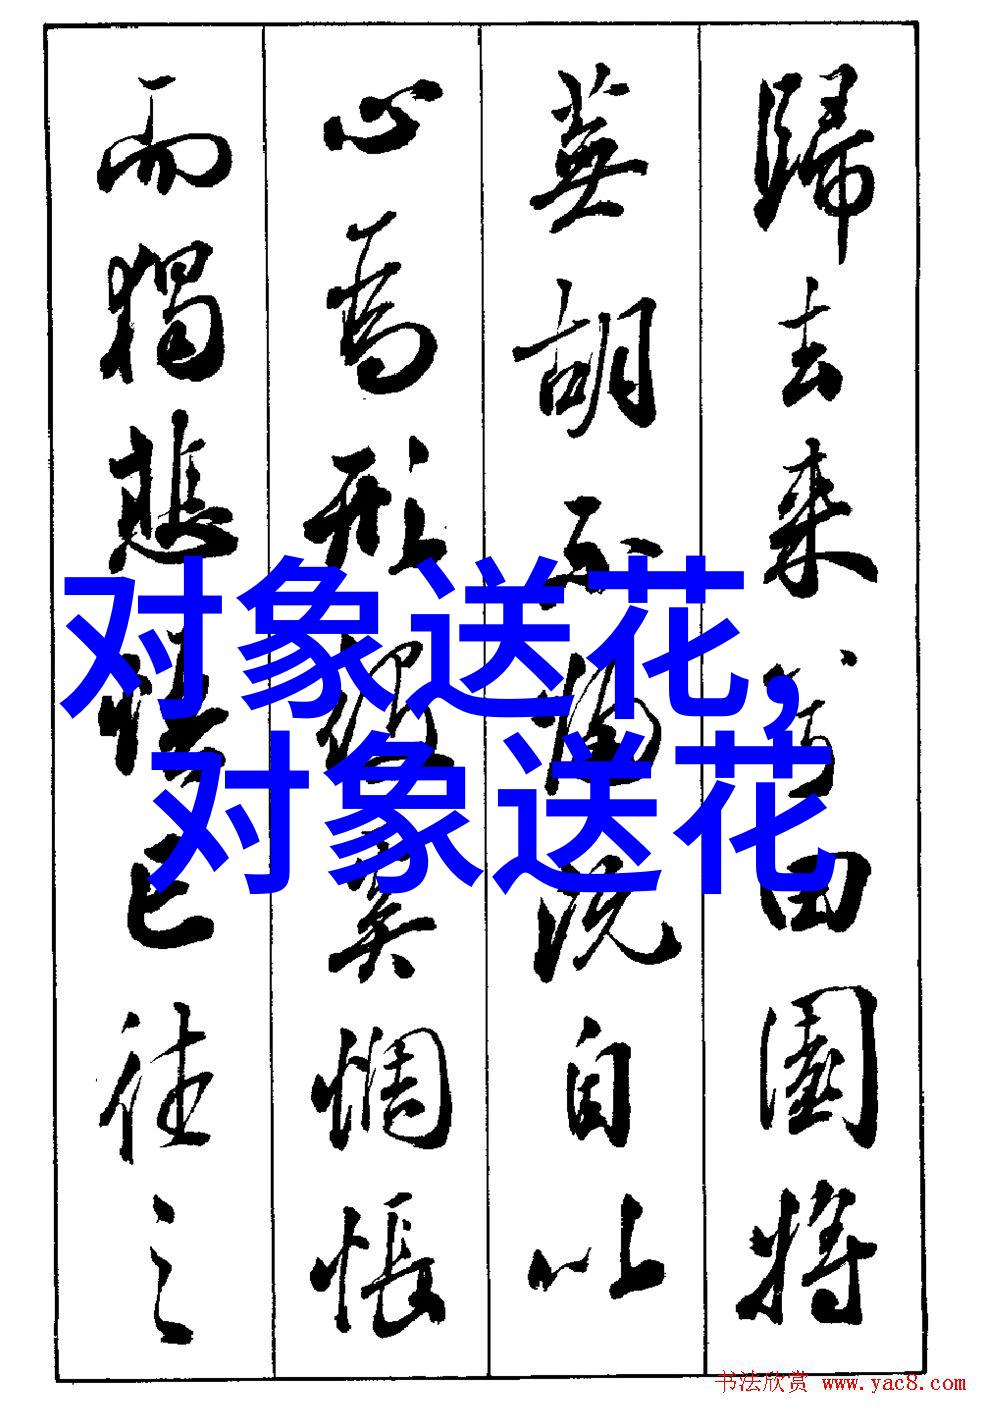 歸去来兮田園將
蕪胡不歸既自以
心為形役奚惆悵
而獨悲悟已往之
对象送花，
对象送花
书法欣赏 www.yac8.com